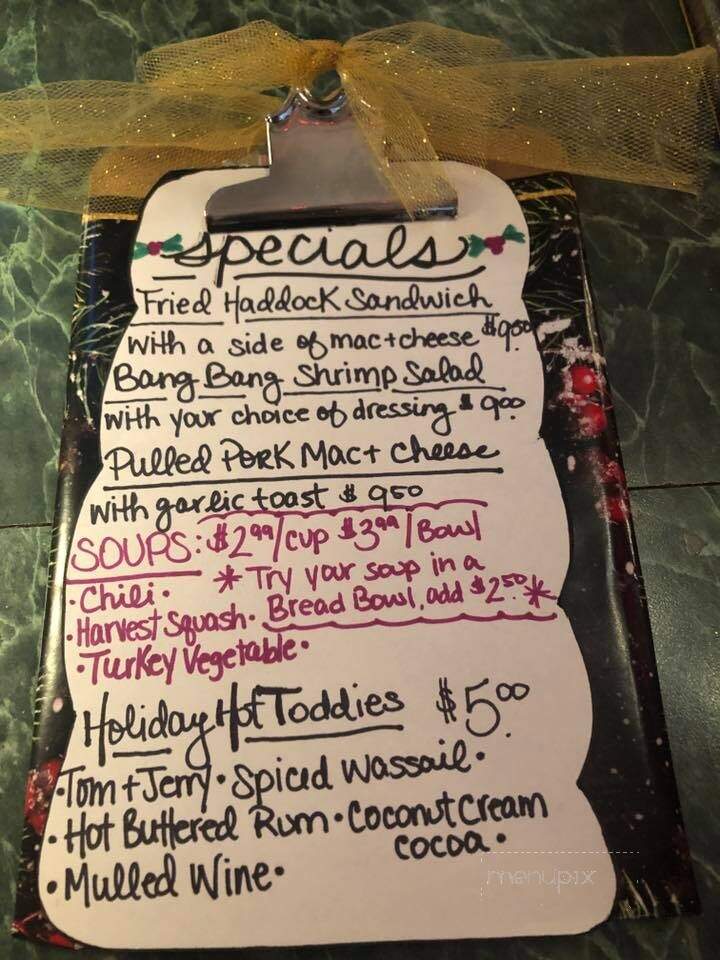 Specials
Fried Haddock Sandwich
with a side of mac+cheese $9.00
Bang Bang Shrimp Salad
with your choice of dressing $9.00
Pulled Pork Mac+ Cheese
with garlic toast $9.50
SOUPS: $2.99/cup $3.99/Bowl
*Try your soup in a
Bread Bowl, add $2.50*
•Chili•
•Harvest Squash•
•Turkey Vegetable•
Holiday Hot Toddies $5.00
•Tom+Jerry•Spiced Wassail•
•Hot Buttered Rum•Coconut Cream
cocoa•
•Mulled Wine•
menupix